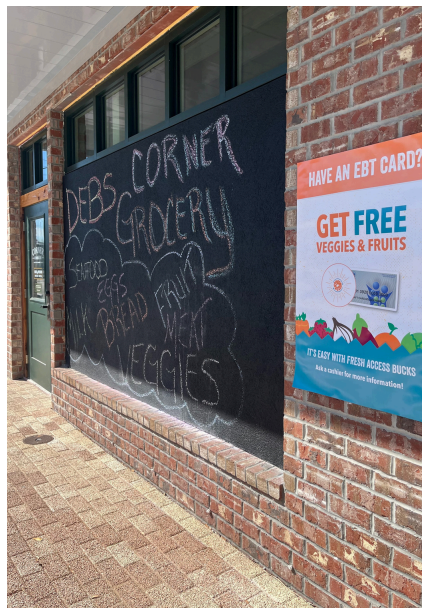 DEBS CORNER
GROCERY
SEAFOOD
EGGS
FRUIT
MILK BREAD MEAT
VEGGIES
HAVE AN EBT CARD?
GET FREE
VEGGIES & FRUITS
IT'S EASY WITH FRESH ACCESS BUCKS
Ask a cashier for more information!